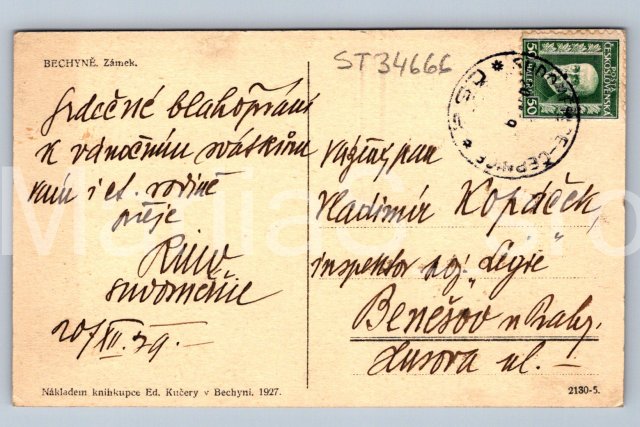 BECHYNĚ. Zámek.
ST34666
Srdečné blahopřání
k vánočním svátkům
Vám i ct. rodině
přeje
Sudoměřice
20/XII. 29.
Vážený pan
Vladimír Kopáček,
inspektor poj. „Legie"
Benešov u Prahy.
Husova ul. —
POŠTA
ČESKOSLOVENSKÁ
50 HALÉŘŮ 50
ČSR
Nákladem knihkupce Ed. Kučery v Bechyni. 1927.
2130-5.